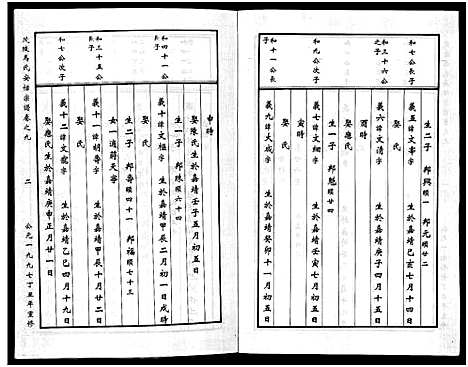 和七公長子
義五諱文事字 生於嘉靖己亥七月十四日
生二子 邦興順一 邦元順廿二
和三十六公之子
義六諱文清字 生於嘉靖庚子四月十五日
酉時
娶應氏
和九公次子
義七諱文細字 生於嘉靖壬寅七月初五日
寅時
娶氏
生一子 邦魁順廿四
和十一公長子
義九諱大成字 生於嘉靖癸卯十一月初五日
申時
娶陳氏生於嘉靖壬子五月初五日
生一子 邦珠順六十四
和四十一公子
義十諱文楦字 生於嘉靖甲辰二月初一日戌時
娶氏
生二子 邦壽順四十一 邦福順七十三
女一適蔚天寧
和三十五公長子
義十一諱胡壽字 生於嘉靖甲辰十月廿二日
娶氏
和七公次子
義十二諱文龍字 生於嘉靖乙巳四月十九日
娶應氏生於嘉靖庚申正月廿一日
茂陵馬氏安福宗譜卷之九
二
公元一九九七丁丑年重修